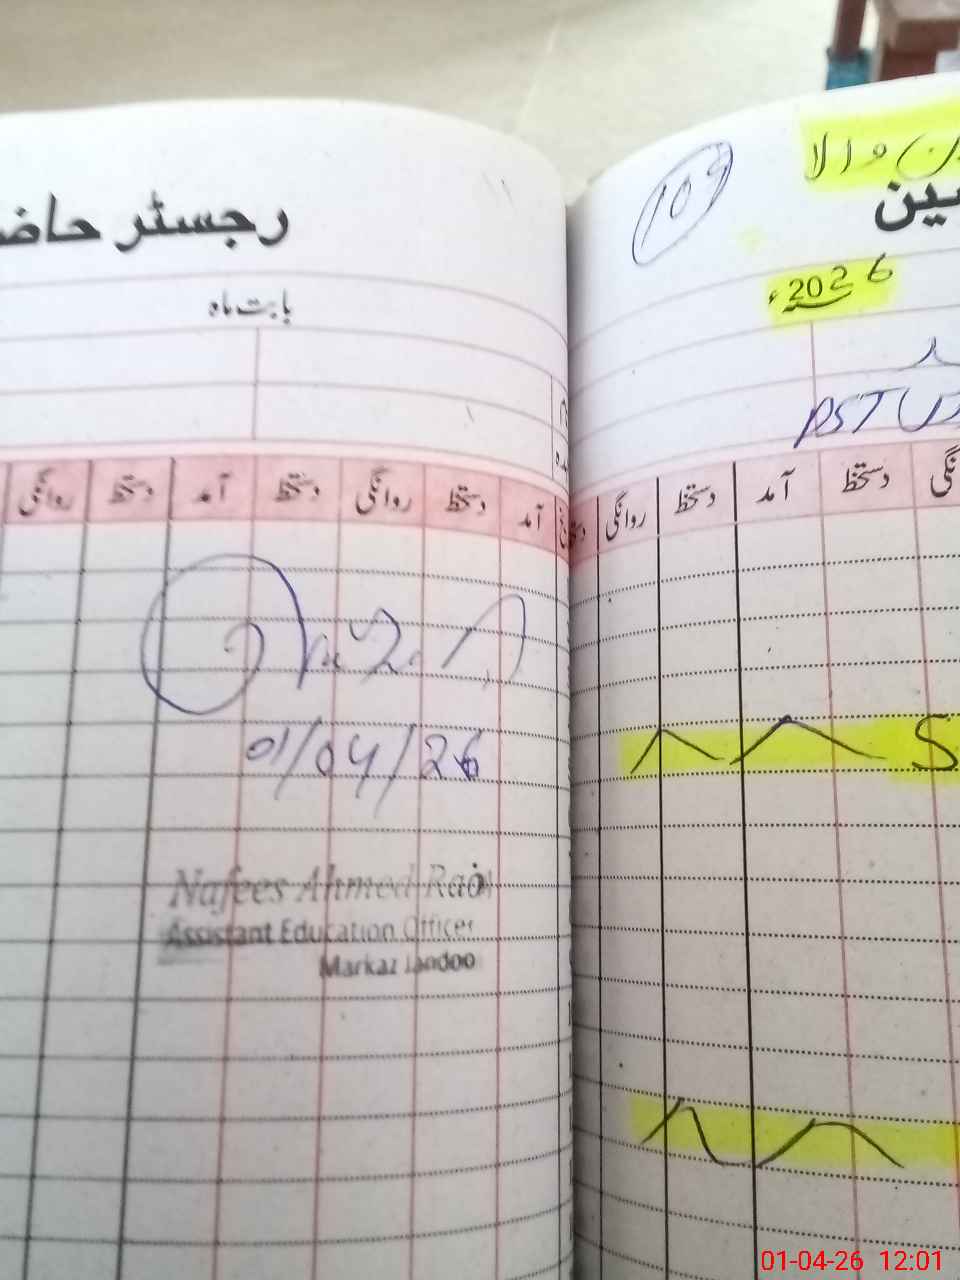 رجسٹر حاض
بابت ماہ
روانگی دستخط آمد دستخط روانگی دستخط آمد
01/04/26
Nafees Ahmed Rao
Assistant Education Officer
Markaz Jandoo
109
والا
ین
2026ء
PST
روانگی دستخط آمد دستخط
01-04-26 12:01